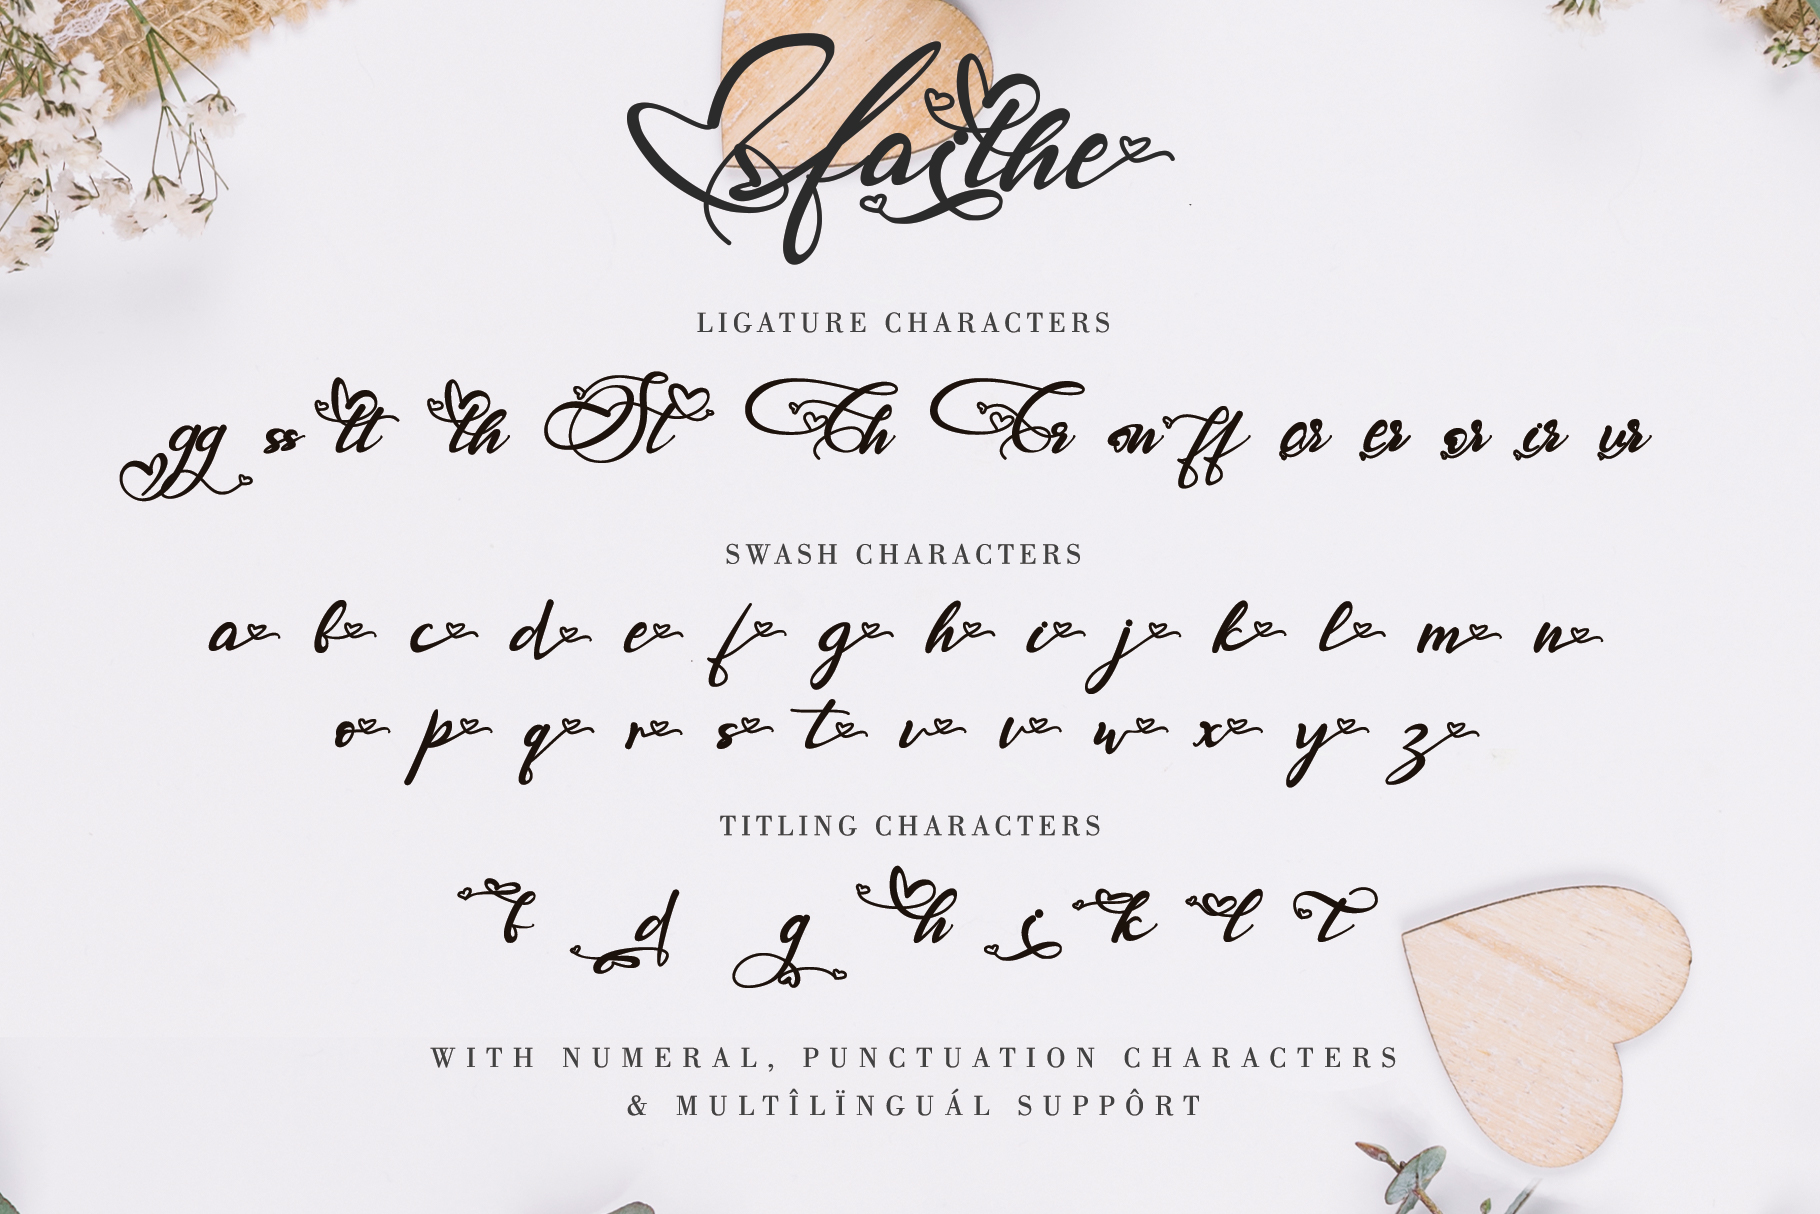 Sfaithe
LIGATURE CHARACTERS
gg ss tt th St Th Tr on ff ar er or ir ur
SWASH CHARACTERS
a b c d e f g h i j k l m n
o p q r s t v v w x y z
TITLING CHARACTERS
b d g h i k l t
WITH NUMERAL, PUNCTUATION CHARACTERS
& MULTÎLÏNGUÁL SUPPÔRT